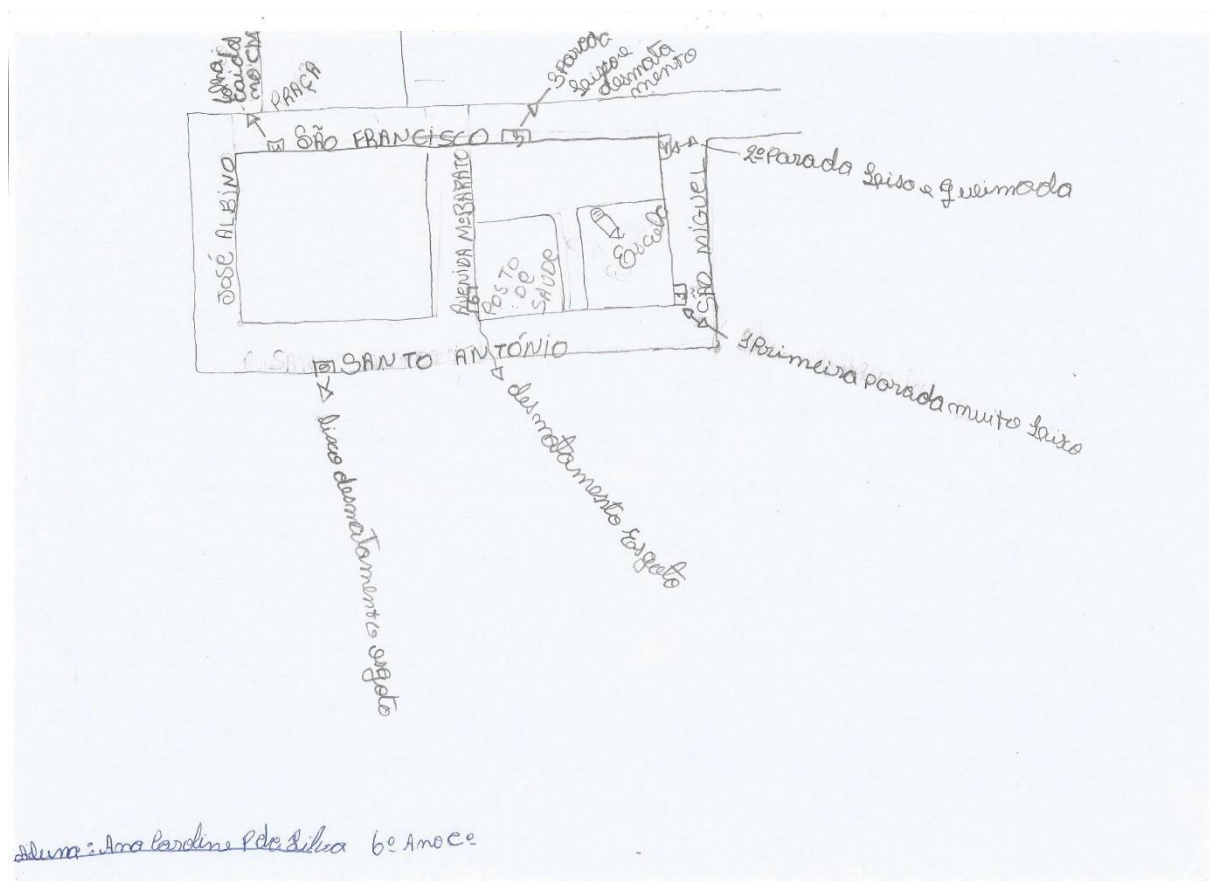 caida
PRAÇA
3 Parada
Leixo e
desmata
mento
SÃO FRANCISCO
3
2º Parada Leiso e Queimada
JOSÉ ALBINO
AVENIDA Mº BARATO
POSTO
DE
SAÚDE
Escola
SÃO MIGUEL
1
1 Primeira parada muito Leixo
SANTO ANTÓNIO
desmatamento Esgoto
Lixo desmatamento esgoto
Aluna: Ana Caroline P da Silva 6º Ano Cº